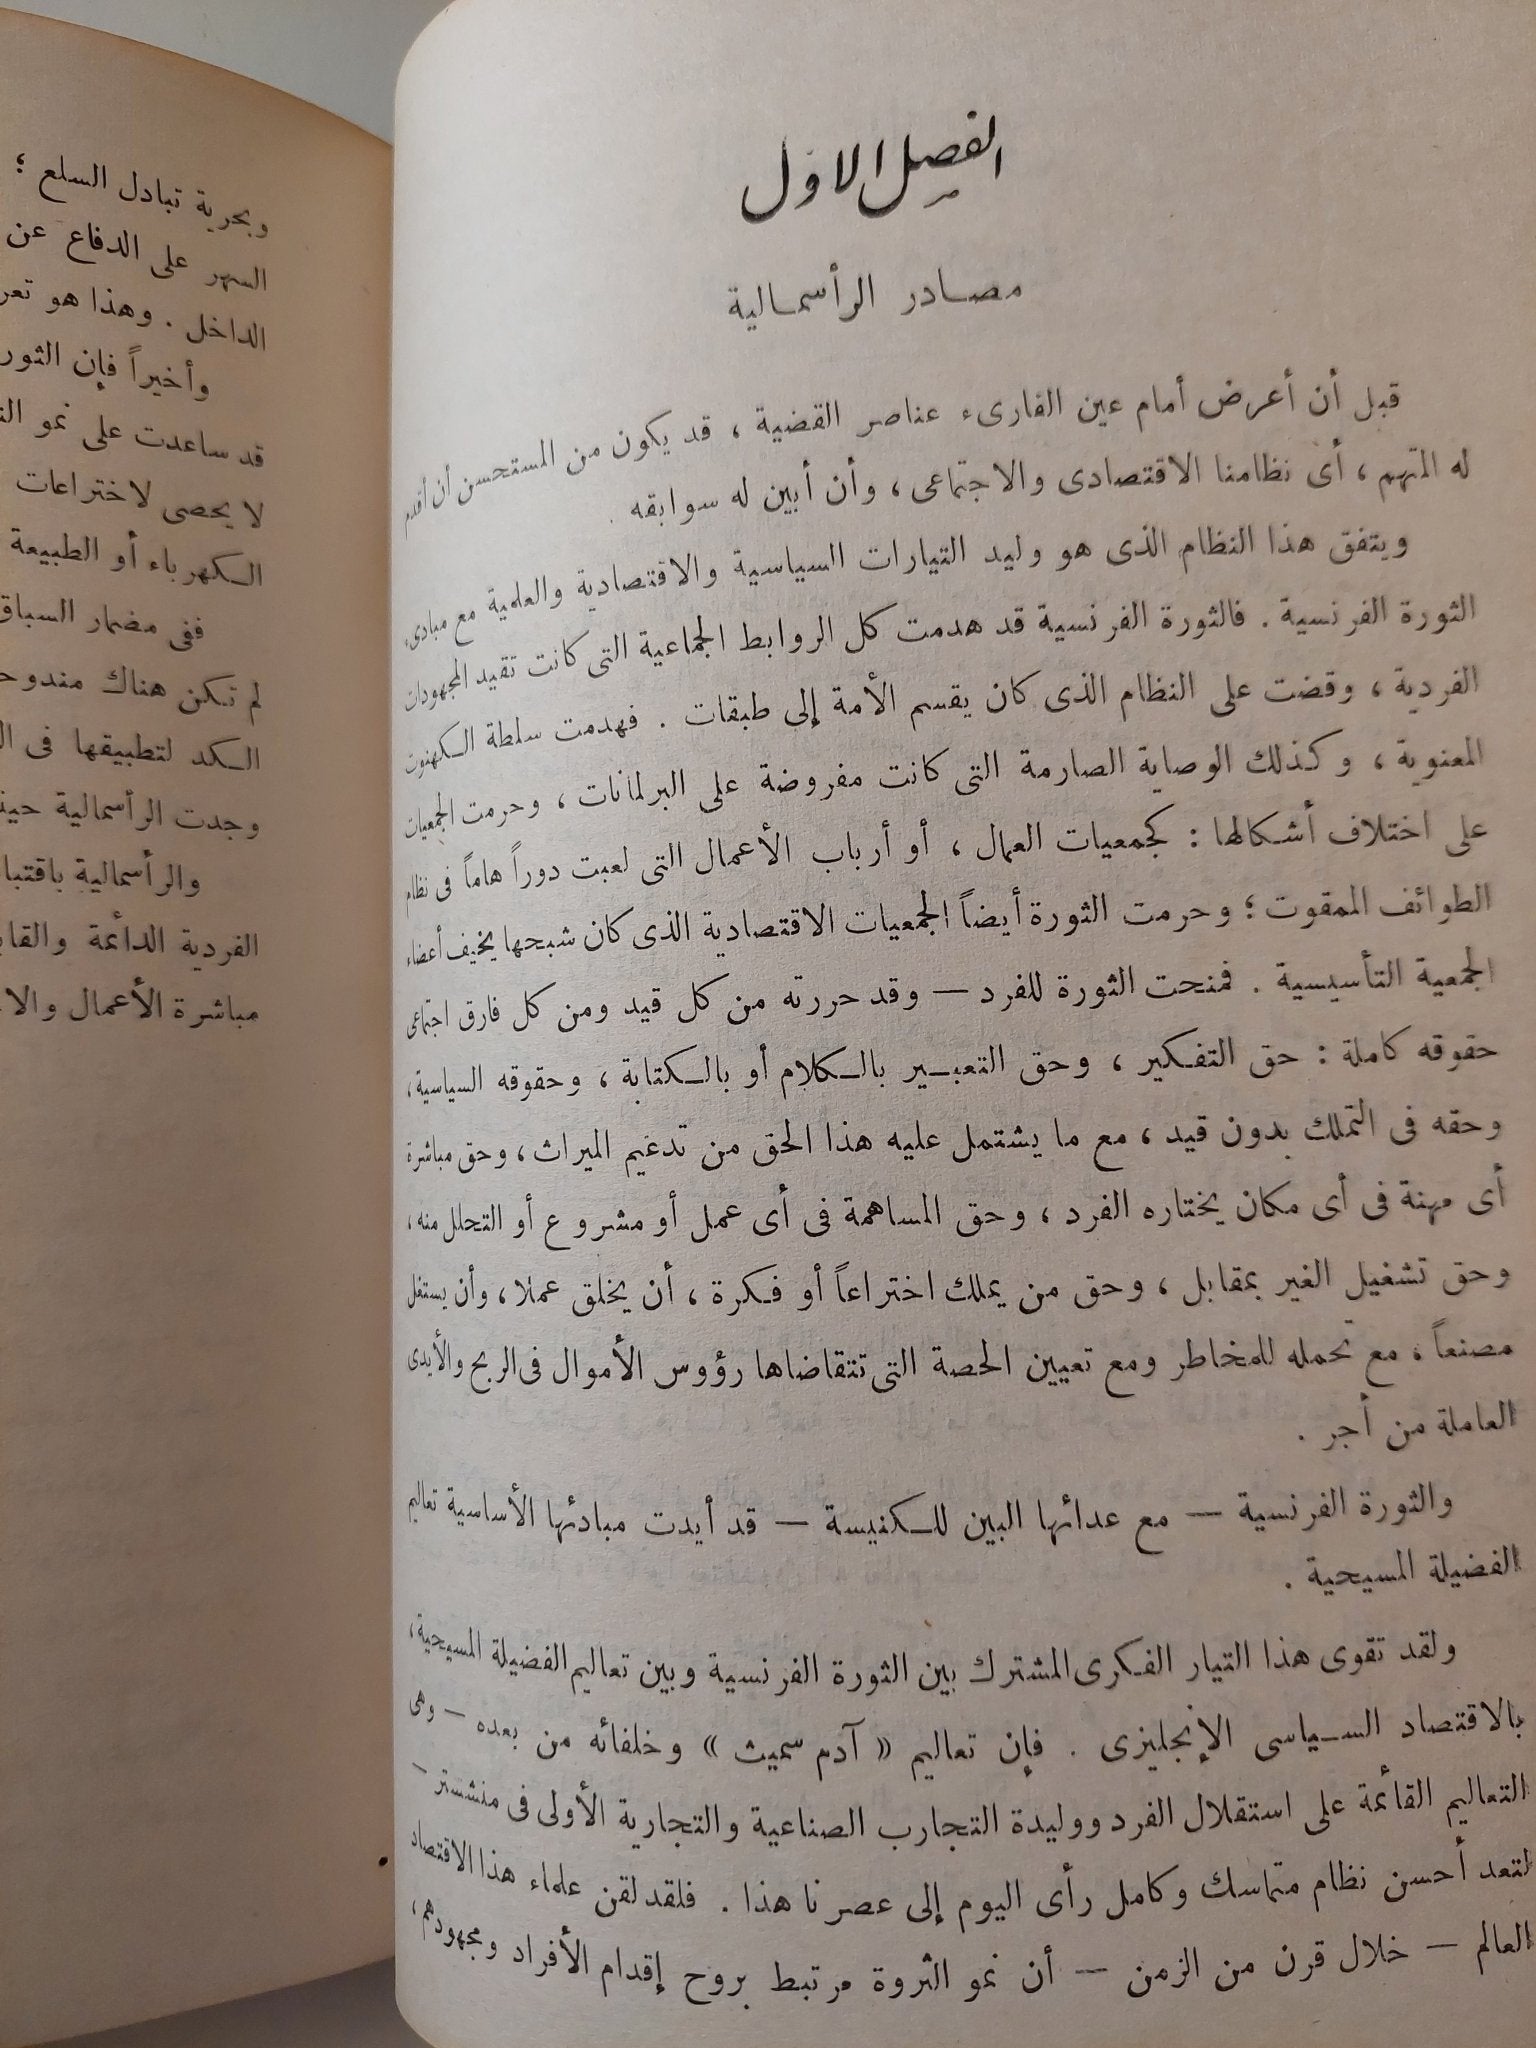 الفصل الاول
مصادر الرأسمالية
قبل أن أعرض أمام عين القارىء عناصر القضية ، قد يكون من المستحسن أن أقدم
له المتهم ، أى نظامنا الاقتصادى والاجتماعى ، وأن أبين له سوابقه .
ويتفق هذا النظام الذى هو وليد التيارات السياسية والاقتصادية والعلمية مع مبادىء
الثورة الفرنسية . فالثورة الفرنسية قد هدمت كل الروابط الجماعية التى كانت تقيد المجهودات
الفردية ، وقضت على النظام الذى كان يقسم الأمة إلى طبقات . فهدمت سلطة الكهنوت
المعنوية ، وكذلك الوصاية الصارمة التى كانت مفروضة على البرلمانات ، وحرمت الجمعيات
على اختلاف أشكالها : كجمعيات العمال ، أو أرباب الأعمال التى لعبت دوراً هاماً فى نظام
الطوائف الممقوت ؛ وحرمت الثورة أيضاً الجمعيات الاقتصادية الذى كان شبحها يخيف أعضاء
الجمعية التأسيسية . فمنحت الثورة للفرد — وقد حررته من كل قيد ومن كل فارق اجتماعى
حقوقه كاملة : حق التفكير ، وحق التعبير بالكلام أو بالكتابة ، وحقوقه السياسية ،
وحقه فى التملك بدون قيد ، مع ما يشتمل عليه هذا الحق من تدعيم الميراث ، وحق مباشرة
أى مهنة فى أى مكان يختاره الفرد ، وحق المساهمة فى أى عمل أو مشروع أو التحلل منه ،
وحق تشغيل الغير بمقابل ، وحق من يملك اختراعاً أو فكرة ، أن يخلق عملا ، وأن يستغل
مصنعاً ، مع تحمله للمخاطر ومع تعيين الحصة التى تتقاضاها رؤوس الأموال فى الربح والأيدى
العاملة من أجر .
والثورة الفرنسية — مع عدائها البين للكنيسة — قد أيدت مبادئها الأساسية تعاليم
الفضيلة المسيحية .
ولقد تقوى هذا التيار الفكرى المشترك بين الثورة الفرنسية وبين تعاليم الفضيلة المسيحية ،
بالاقتصاد السياسى الإنجليزى . فإن تعاليم « آدم سميث » وخلفائه من بعده — وهى
التعاليم القائمة على استقلال الفرد ووليدة التجارب الصناعية والتجارية الأولى فى منشستر —
لتعد أحسن نظام متماسك وكامل رأى اليوم إلى عصرنا هذا . فلقد لقن علماء هذا الاقتصاد
العالم — خلال قرن من الزمن — أن نمو الثروة مرتبط بروح إقدام الأفراد ومجهودهم ،
وبحرية تبادل السلع ؛
السهر على الدفاع عن
الداخل . وهذا هو
وأخيراً فإن
قد ساعدت على نمو
لا يحصى لاختراعات
الكهرباء أو الطبيعة
ففى مضمار السباق
لم تكن هناك
الكد لتطبيقها فى
وجدت الرأسمالية
والرأسمالية
الفردية الدائمة
مباشرة الأعمال